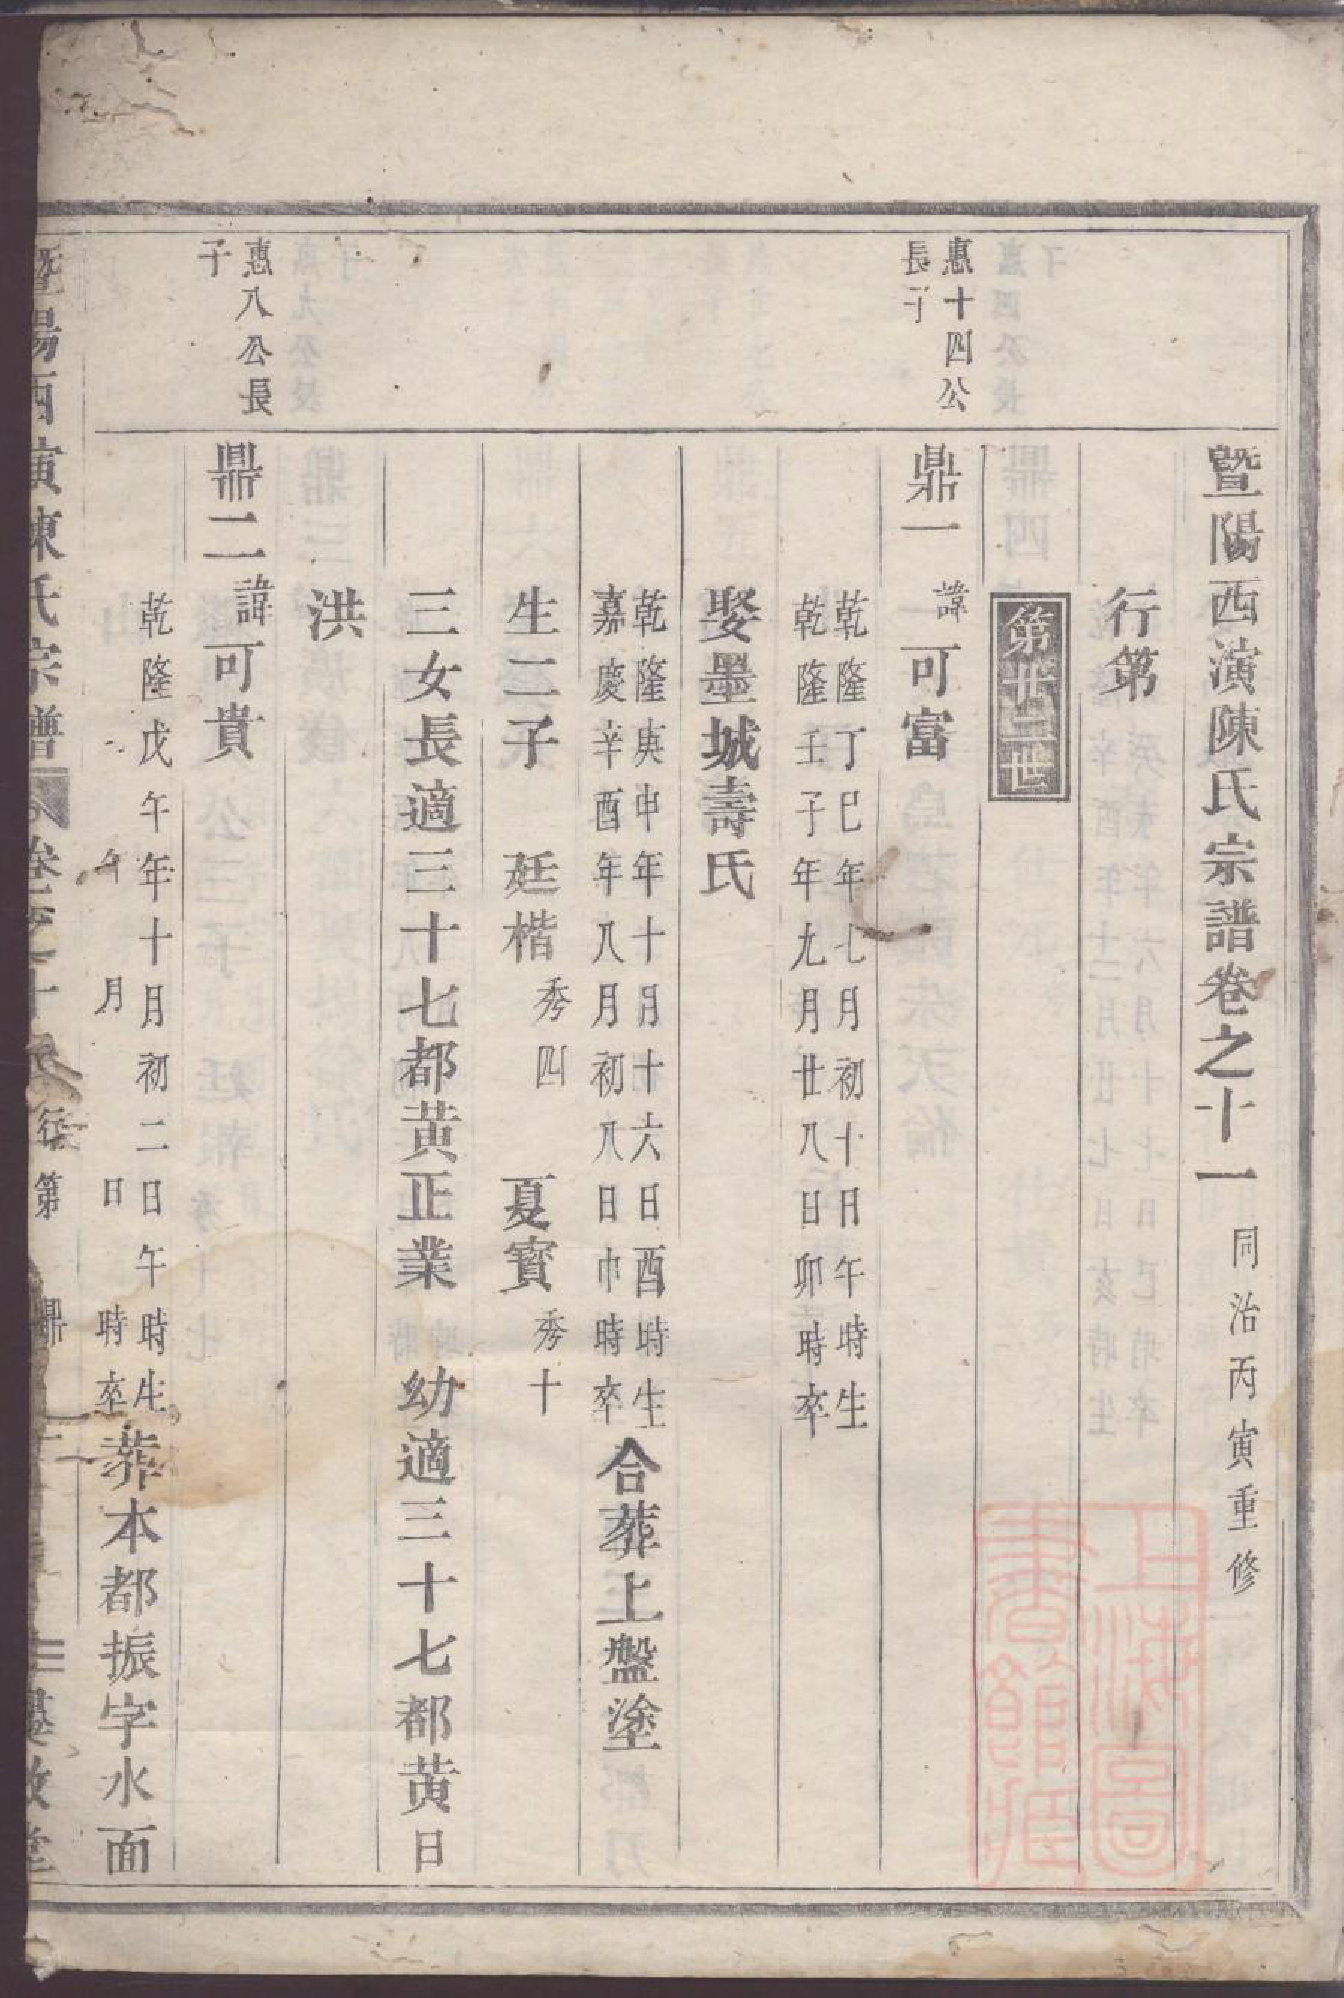 暨陽西演陳氏宗譜卷之十一 同治丙寅重修
行第
第廿三世
惠十四公
長子
鼎一 諱可富
乾隆丁巳年七月初十日午時生
乾隆壬子年九月廿八日卯時卒
娶墨城壽氏
乾隆庚申年十月十六日酉時生
嘉慶辛酉年八月初八日巾時卒
合葬上盤塗
生二子 廷楷 秀四 夏寳 秀十
三女長適三十七都黄正業 幼適三十七都黄日
洪
惠八公長
子
鼎二 諱可貴
乾隆戊午年十月初二日午時生
年 月 日 時卒
葬本都振字水面
暨陽西演陳氏宗譜 卷之十
行第 鼎
上海圖書館藏